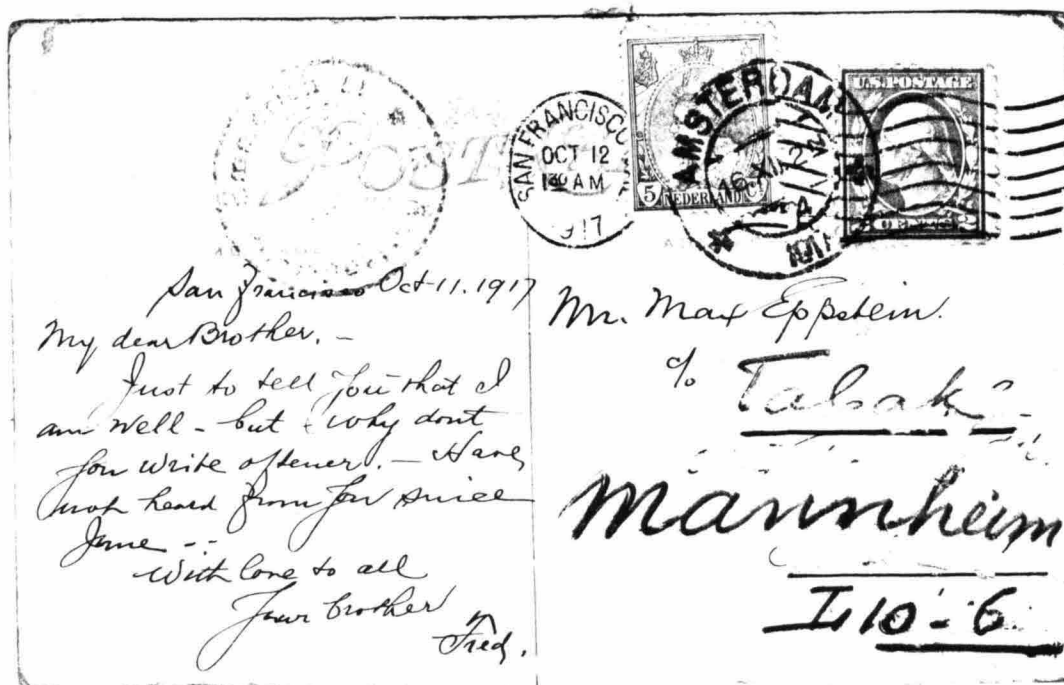 POST
SAN FRANCISCO
OCT 12
1 30 AM
1917
5 NEDERLAND Ct
AMSTERDAM
16 XII
U.S. POSTAGE
San Francisco Oct-11.1917
My dear Brother. –
Just to tell you that I
am well – but why dont
you write oftener. – Have
not heard from you since
June --
With love to all
Your brother
Fred.
Mr. Max Eppstein.
c/o Tabak
Mannheim
L 10 - 6